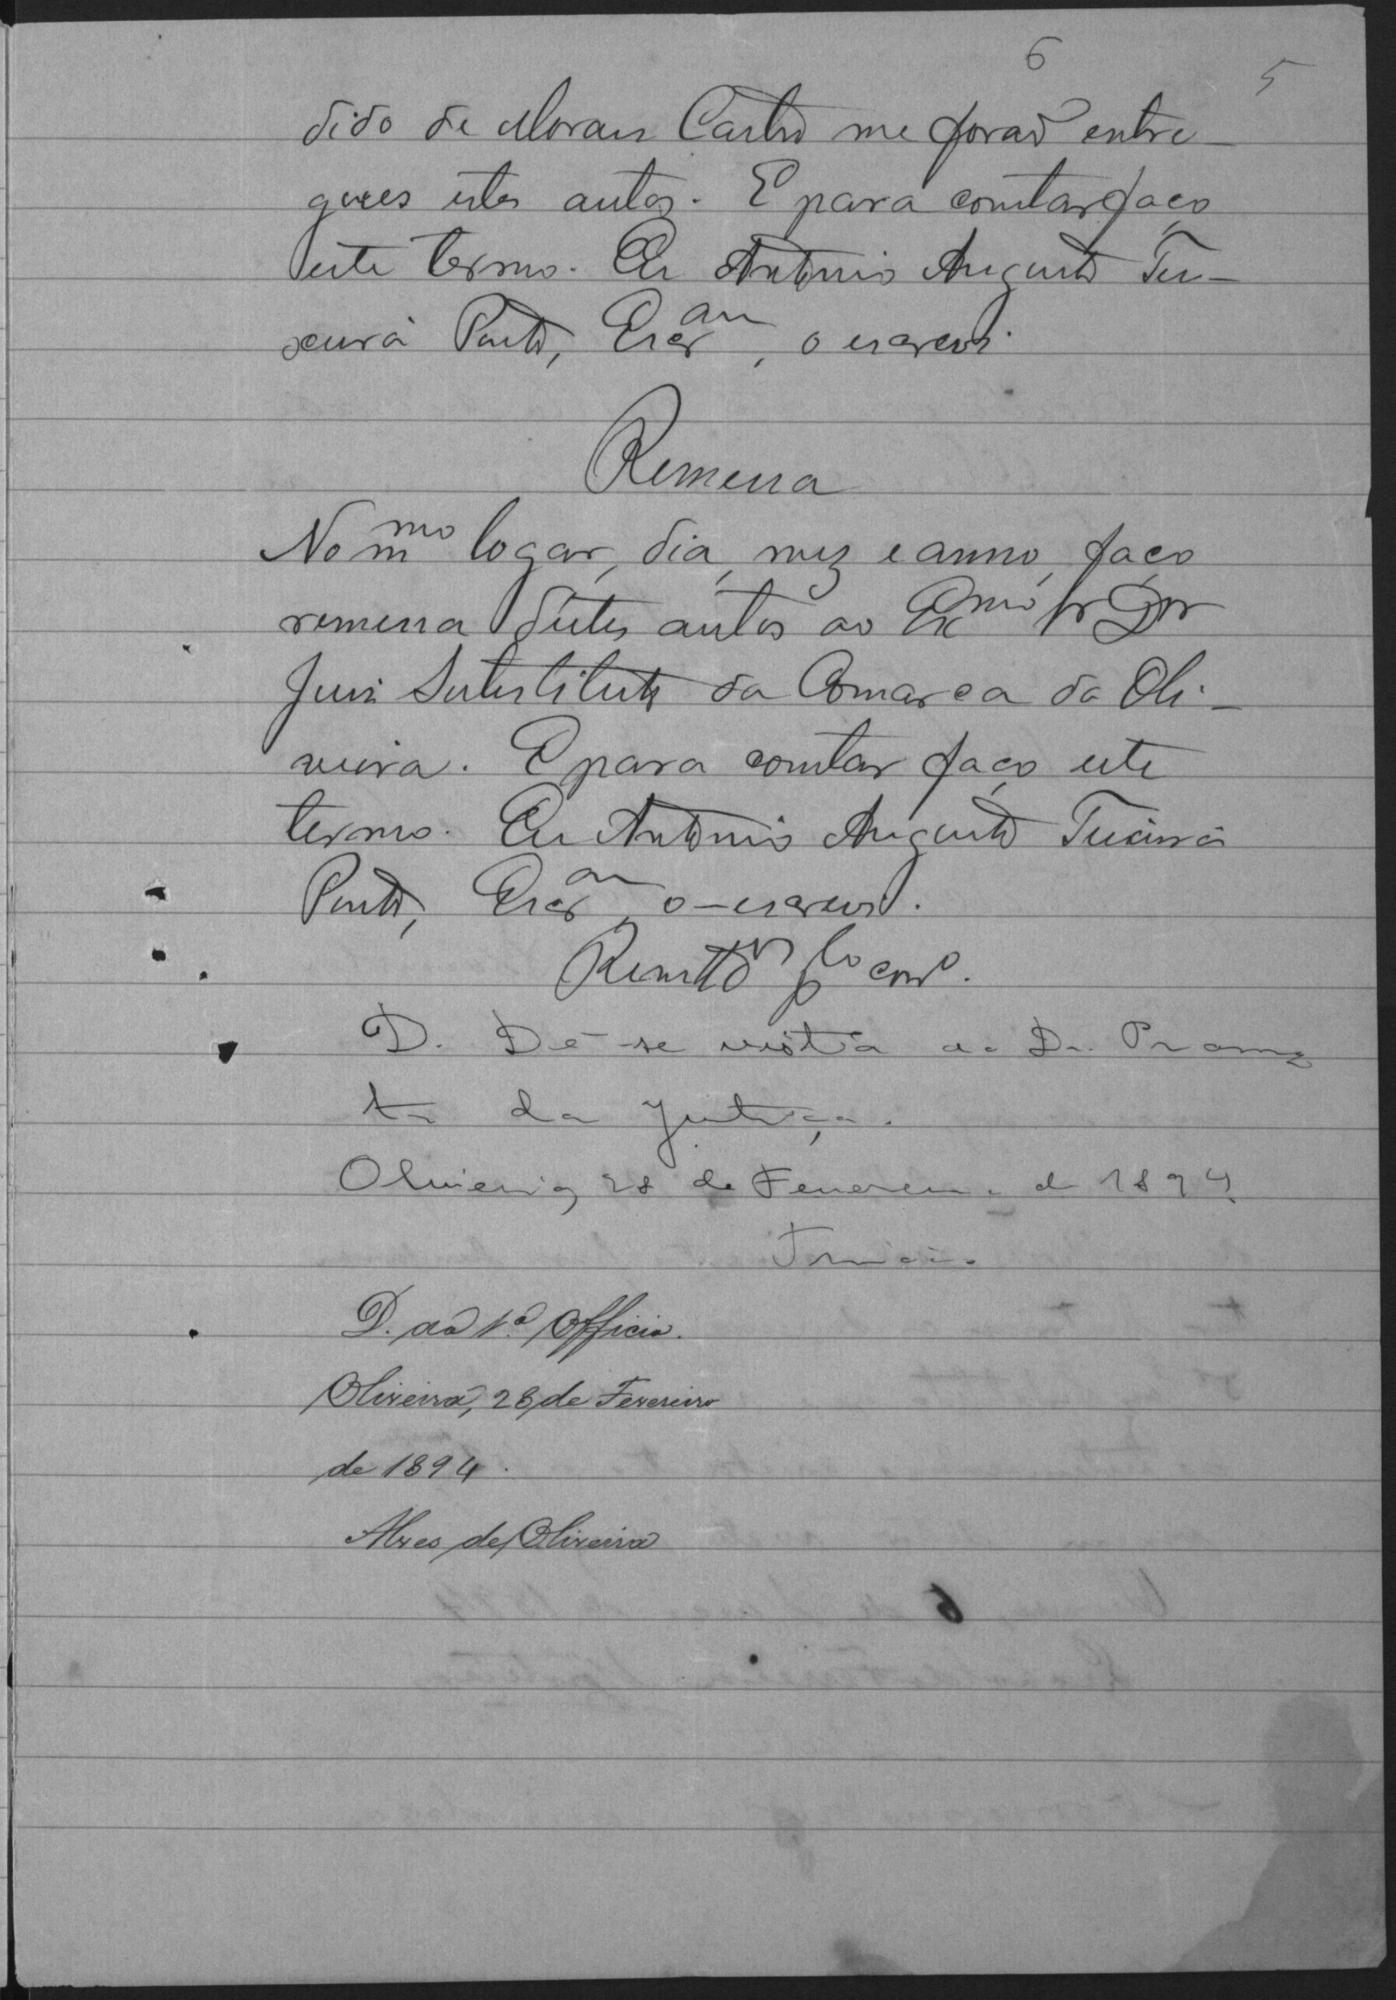 6 5
dido de Moraes Castro me forão entre-
gues estes autos. E para constar faço
este termo. Eu Antonio Augusto Tei-
xeira Pinto, Escr.am, o escrevi.
Remessa
No m.mo logar, dia, mez e anno, faço
remessa d'estes autos ao Ex.mo Sr Dr
Juiz Substituto da Comarca da Oli-
veira. E para constar faço este
termo. Eu Antonio Augusto Teixeira
Pinto, Escr.am, o escrevi.
Remettos
D. Dê-se vista ao Dr. Promo
tor da Justiça.
Oliveira, 28 de Fevereiro de 1894.
D. ao 1.º Officio.
Oliveira, 28, de Fevereiro
de 1894.
Alves de Oliveira